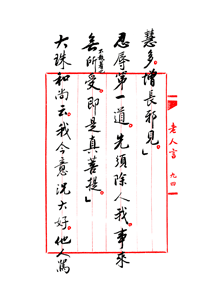 慧多。增長邪見。」
忍辱第一道。先須除人我。事來
無所受。即是真菩提。」
大珠和尚云。我今意況大好。他人罵
老人言 九四